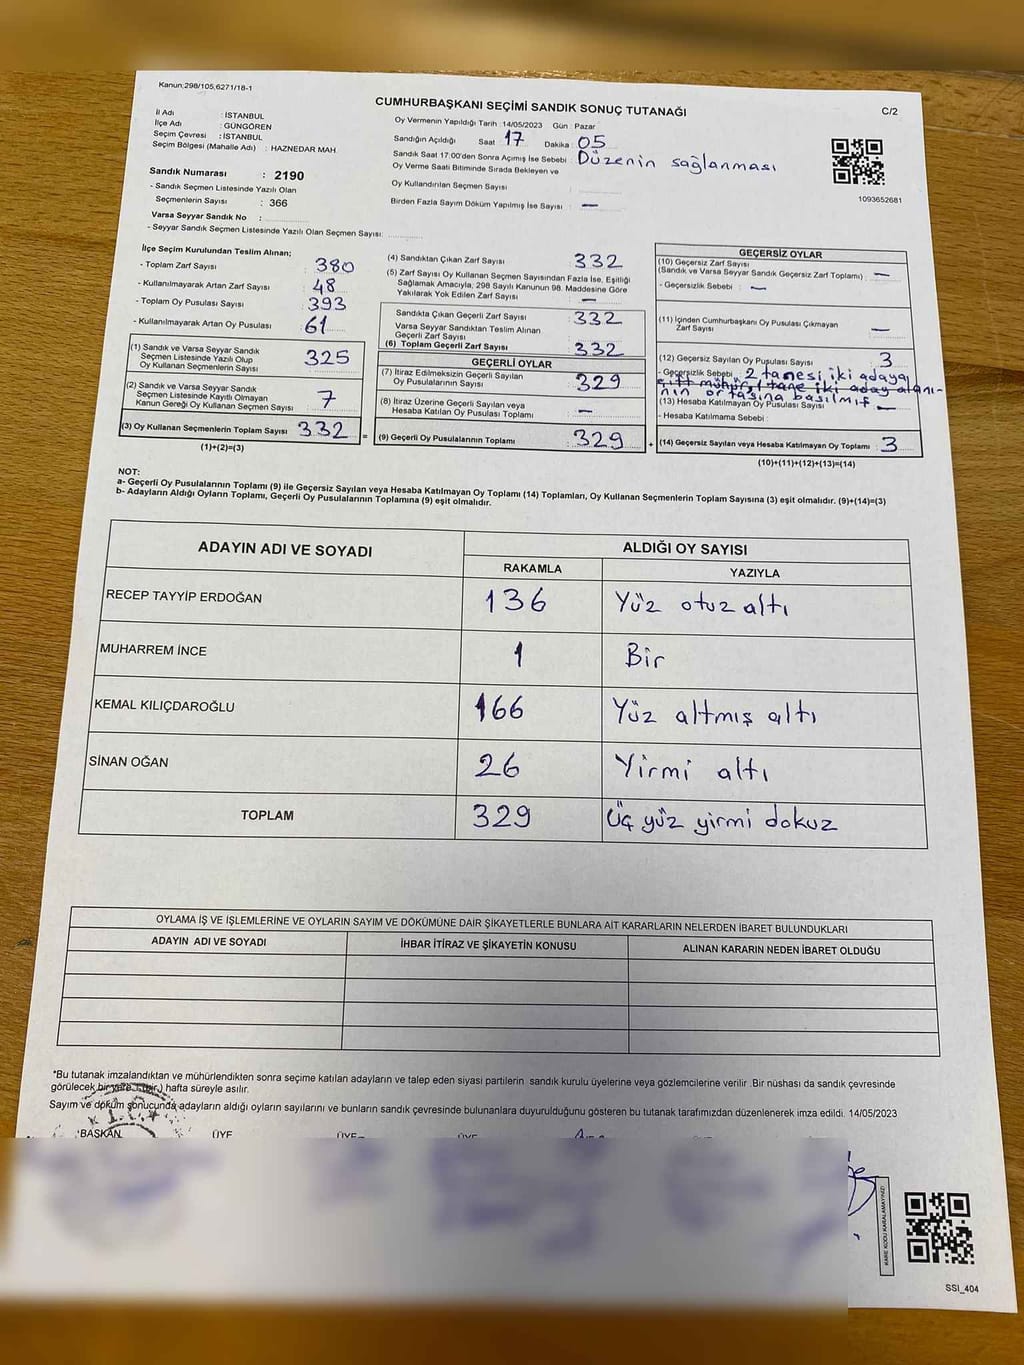 Kanun;298/105,6271/18-1
CUMHURBAŞKANI SEÇİMİ SANDIK SONUÇ TUTANAĞI
C/2
İl Adı : İSTANBUL
İlçe Adı : GÜNGÖREN
Seçim Çevresi : İSTANBUL
Seçim Bölgesi (Mahalle Adı) : HAZNEDAR MAH.
Sandık Numarası : 2190
- Sandık Seçmen Listesinde Yazılı Olan
Seçmenlerin Sayısı : 366
Varsa Seyyar Sandık No :
- Seyyar Sandık Seçmen Listesinde Yazılı Olan Seçmen Sayısı:
Oy Vermenin Yapıldığı Tarih : 14/05/2023 Gün : Pazar
Sandığın Açıldığı Saat 17 Dakika : 05
Sandık Saat 17:00'den Sonra Açımış İse Sebebi : Düzenin sağlanması
Oy Verme Saati Bitiminde Sırada Bekleyen ve
Oy Kullandırılan Seçmen Sayısı :
Birden Fazla Sayım Döküm Yapılmış İse Sayısı : —
1093652681
İlçe Seçim Kurulundan Teslim Alınan;
- Toplam Zarf Sayısı : 380
- Kullanılmayarak Artan Zarf Sayısı : 48
- Toplam Oy Pusulası Sayısı : 393
- Kullanılmayarak Artan Oy Pusulası : 61
(1) Sandık ve Varsa Seyyar Sandık
Seçmen Listesinde Yazılı Olup
Oy Kullanan Seçmenlerin Sayısı : 325
(2) Sandık ve Varsa Seyyar Sandık
Seçmen Listesinde Kayıtlı Olmayan
Kanun Gereği Oy Kullanan Seçmen Sayısı : 7
(3) Oy Kullanan Seçmenlerin Toplam Sayısı : 332
(1)+(2)=(3)
=
(4) Sandıktan Çıkan Zarf Sayısı : 332
(5) Zarf Sayısı Oy Kullanan Seçmen Sayısından Fazla İse, Eşitliği
Sağlamak Amacıyla, 298 Sayılı Kanunun 98. Maddesine Göre
Yakılarak Yok Edilen Zarf Sayısı : —
Sandıkta Çıkan Geçerli Zarf Sayısı : 332
Varsa Seyyar Sandıktan Teslim Alınan
Geçerli Zarf Sayısı :
(6) Toplam Geçerli Zarf Sayısı : 332
GEÇERLİ OYLAR
(7) İtiraz Edilmeksizin Geçerli Sayılan
Oy Pusulalarının Sayısı : 329
(8) İtiraz Üzerine Geçerli Sayılan veya
Hesaba Katılan Oy Pusulası Toplamı : —
(9) Geçerli Oy Pusulalarının Toplamı : 329
+
GEÇERSİZ OYLAR
(10) Geçersiz Zarf Sayısı
(Sandık ve Varsa Seyyar Sandık Geçersiz Zarf Toplamı) : —
- Geçersizlik Sebebi : —
(11) İçinden Cumhurbaşkanı Oy Pusulası Çıkmayan
Zarf Sayısı : —
(12) Geçersiz Sayılan Oy Pusulası Sayısı : 3
- Geçersizlik Sebebi : 2 tanesi iki adaya
çift mühür, 1 tane iki aday alanı-
nın ortasına basılmış
(13) Hesaba Katılmayan Oy Pusulası Sayısı : —
- Hesaba Katılmama Sebebi :
(14) Geçersiz Sayılan veya Hesaba Katılmayan Oy Toplamı : 3
(10)+(11)+(12)+(13)=(14)
NOT:
a- Geçerli Oy Pusulalarının Toplamı (9) ile Geçersiz Sayılan veya Hesaba Katılmayan Oy Toplamı (14) Toplamları, Oy Kullanan Seçmenlerin Toplam Sayısına (3) eşit olmalıdır. (9)+(14)=(3)
b- Adayların Aldığı Oyların Toplamı, Geçerli Oy Pusulalarının Toplamına (9) eşit olmalıdır.
ADAYIN ADI VE SOYADI
ALDIĞI OY SAYISI
RAKAMLA YAZIYLA
RECEP TAYYİP ERDOĞAN 136 Yüz otuz altı
MUHARREM İNCE 1 Bir
KEMAL KILIÇDAROĞLU 166 Yüz altmış altı
SİNAN OĞAN 26 Yirmi altı
TOPLAM 329 Üç yüz yirmi dokuz
OYLAMA İŞ VE İŞLEMLERİNE VE OYLARIN SAYIM VE DÖKÜMÜNE DAİR ŞİKAYETLERLE BUNLARA AİT KARARLARIN NELERDEN İBARET BULUNDUKLARI
ADAYIN ADI VE SOYADI İHBAR İTİRAZ VE ŞİKAYETİN KONUSU ALINAN KARARIN NEDEN İBARET OLDUĞU
*Bu tutanak imzalandıktan ve mühürlendikten sonra seçime katılan adayların ve talep eden siyasi partilerin sandık kurulu üyelerine veya gözlemcilerine verilir .Bir nüshası da sandık çevresinde
görülecek bir yere 1 (bir) hafta süreyle asılır.
Sayım ve döküm sonucunda adayların aldığı oyların sayılarını ve bunların sandık çevresinde bulunanlara duyurulduğunu gösteren bu tutanak tarafımızdan düzenlenerek imza edildi. 14/05/2023
T.C.
BAŞKAN ÜYE ÜYE ÜYE
KARE KODU KARALAMAYINIZ!
SSI_404